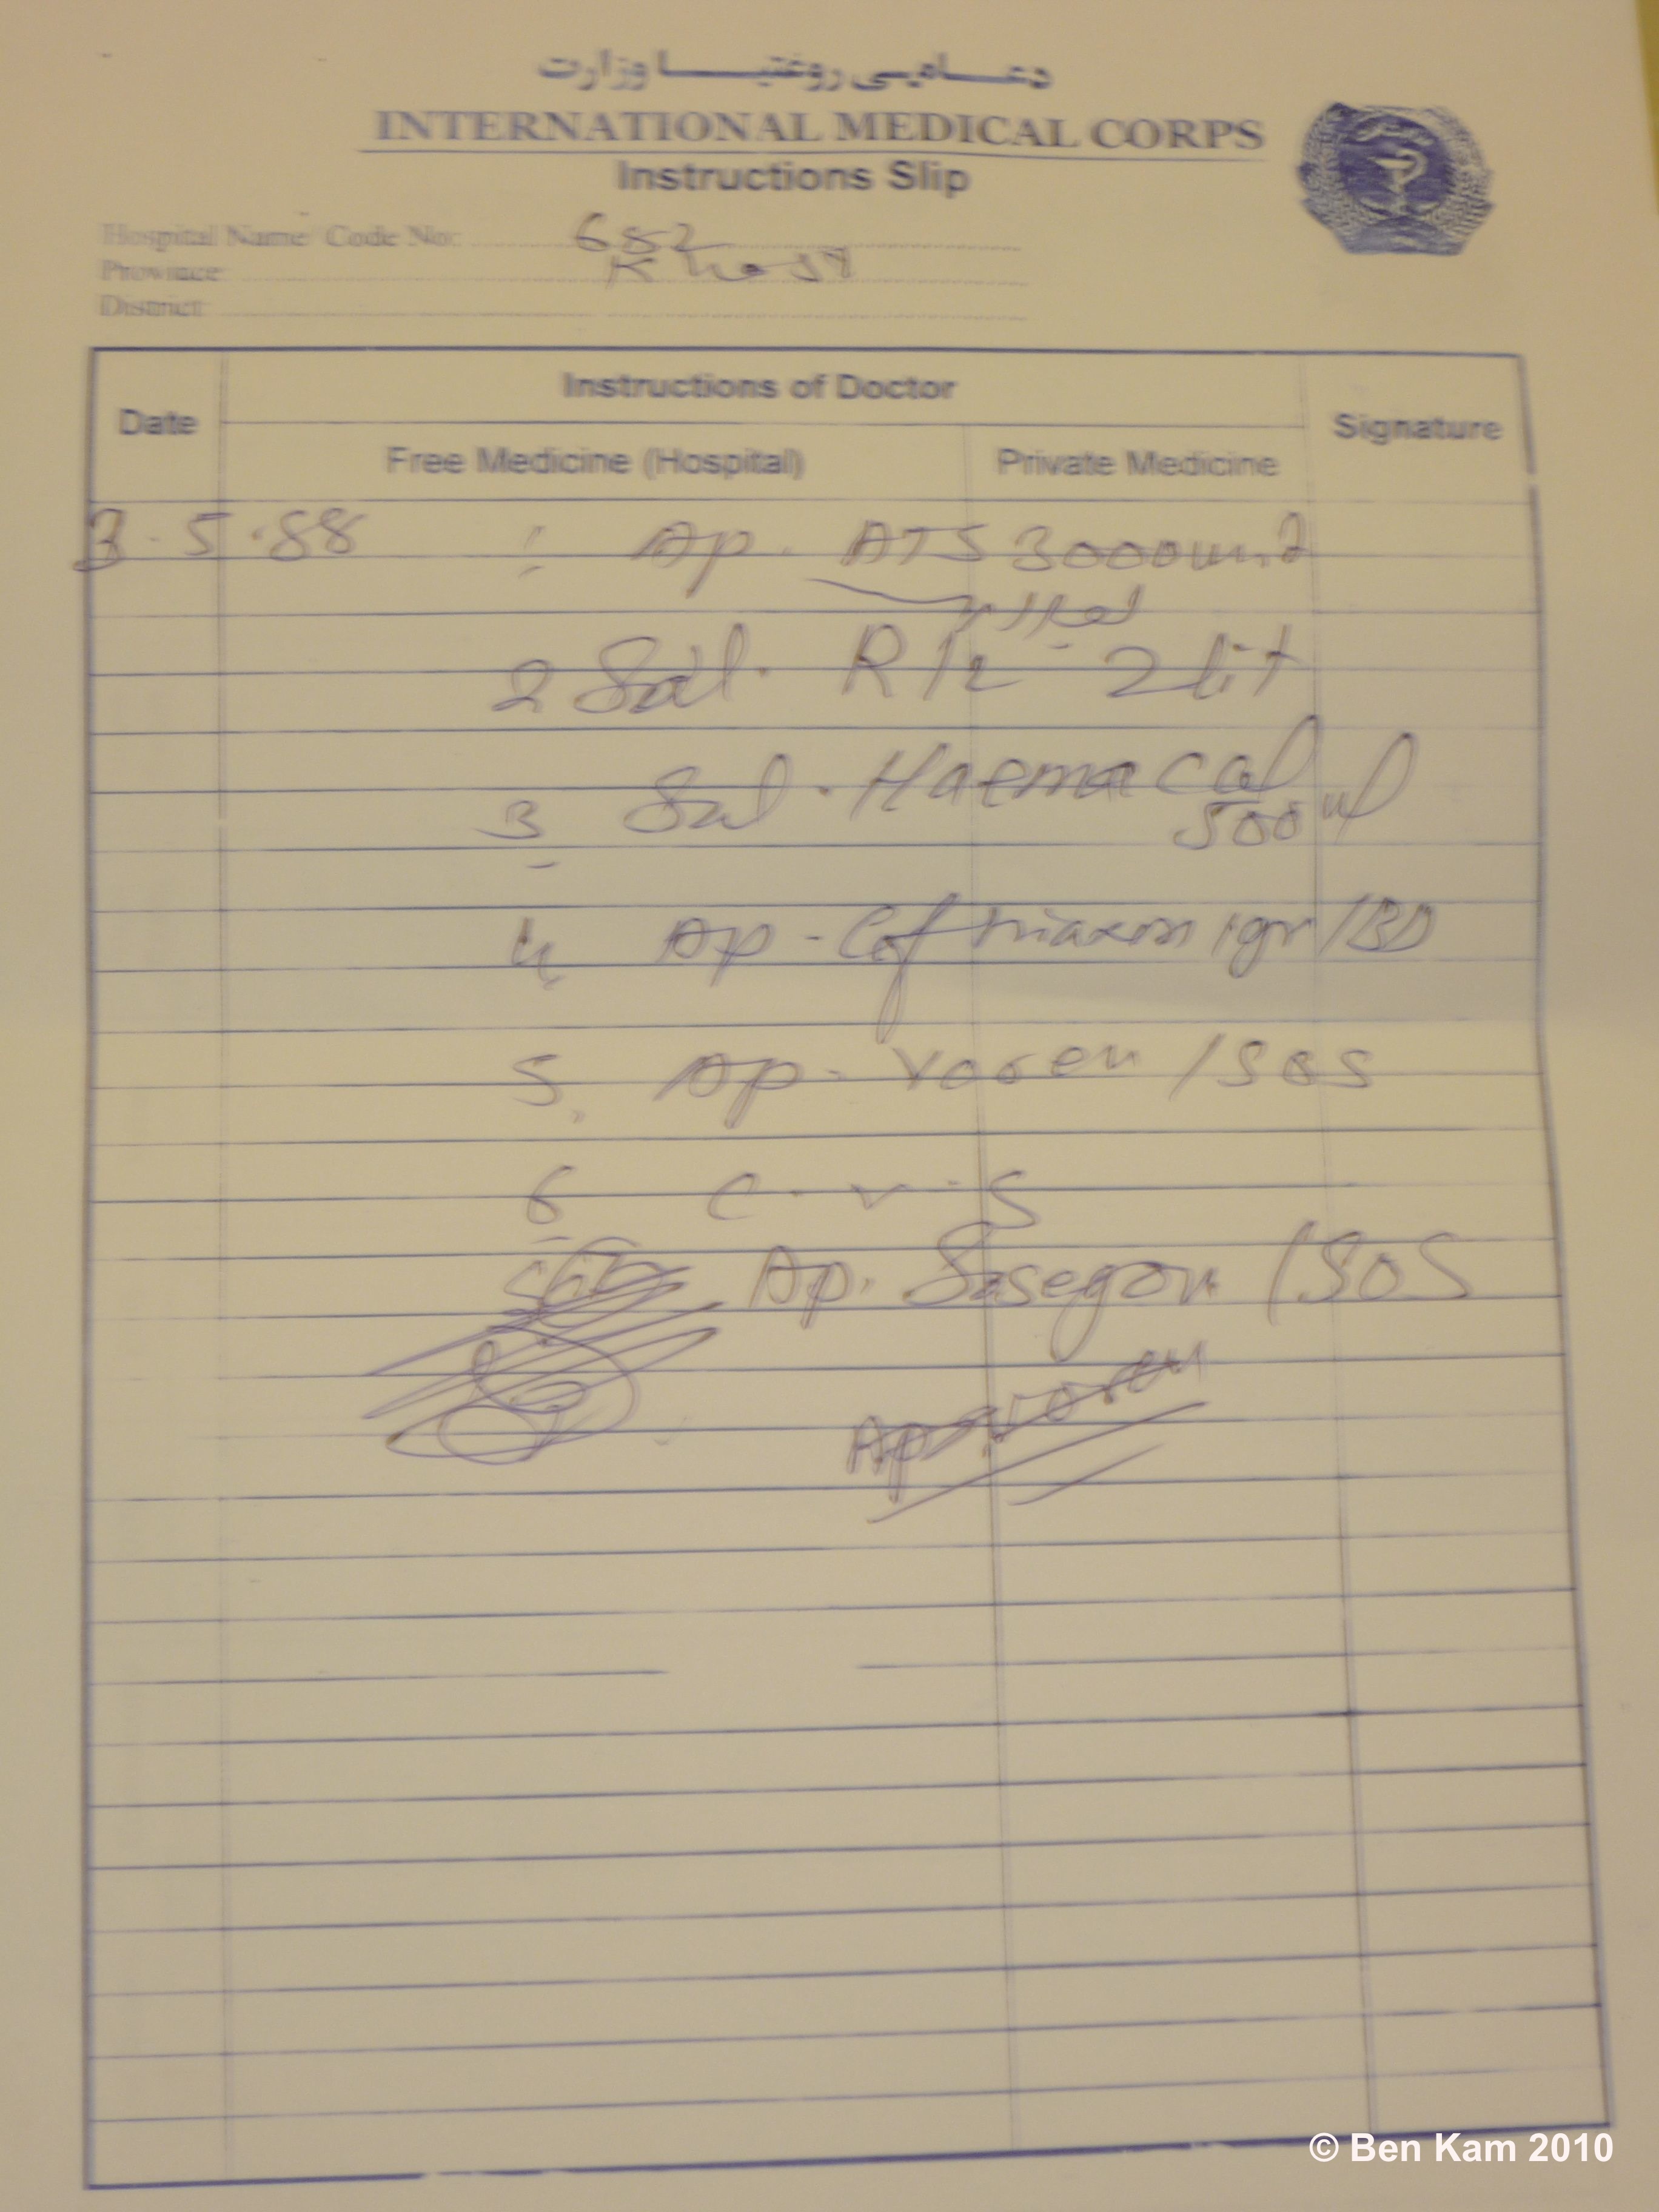 د عـــامـــې روغتيـــــا وزارت
INTERNATIONAL MEDICAL CORPS
Instructions Slip
Hospital Name/ Code No: 682
Province: Khost
District:
Date
Instructions of Doctor
Signature
Free Medicine (Hospital)
Private Medicine
3.5.88 Ap. ATS 3000 unit
2 Sol. R/L 2 lit
3 Sol. Haemacal
500 ml
4 Ap - Ceftriaxon 1gr /BD
5. Ap - Voren /SOS
6 C.V.S
Ap. Sosegon /SOS
Ap Voren
© Ben Kam 2010